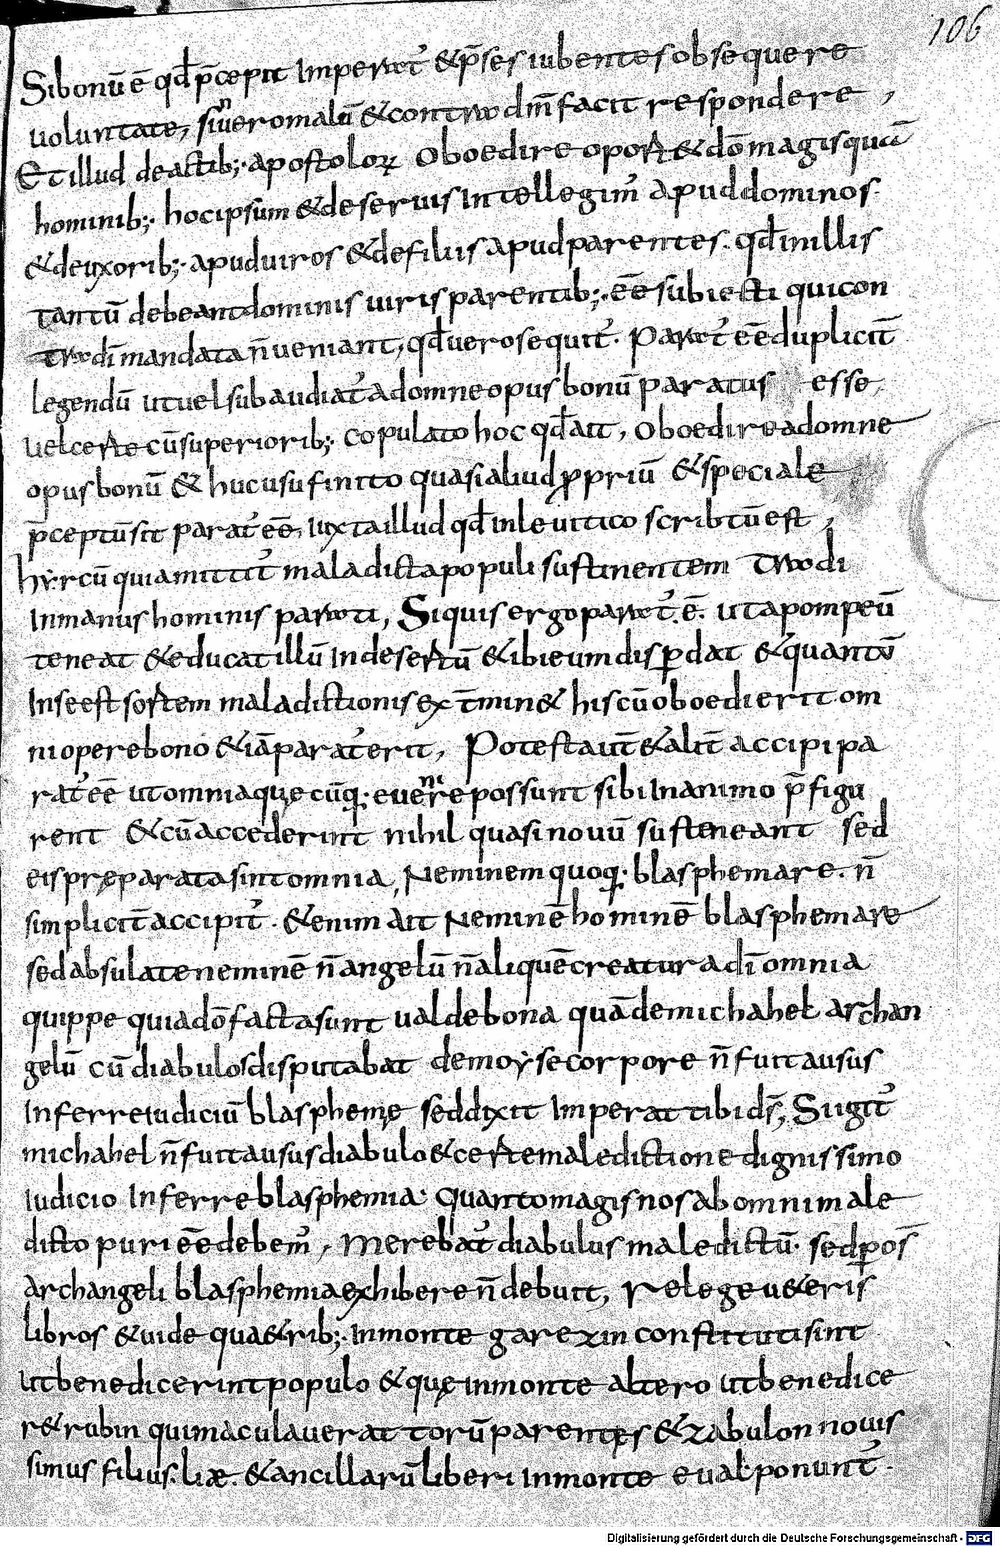 106
Sibonū ē qđ p̄cepit Imperatᷣ & p̄ses iubentes obsequere
uoluntate, sin uero malū & contra dm̄ facit respondere,
Et illud de actib; apostoloꝝ Oboedire oport& dō magis quā
hominib; hoc ipsum & de seruis Intellegimᷣ apud dominos.
& de uxorib; apud uiros & de filiis apud parentes. qđ in illis
tantū debeant dominis uiris parentib; eē subiecti qui con
tra dī mandata n̄ ueniant, qđ uero sequitᷣ. Paratᷣ eē duplicit̄
legendū ut uel subaudiatᷣ ad omne opus bonū paratus esse,
uel certe cū superiorib; copulato hoc qđ ait, Oboedire ad omne
opus bonū & hucusu finito quasi aliud ꝓpriū & speciale
p̄ceptū sit paratᷣ eē, iuxta illud qđ in leuitico scribtū est,
hyrcū qui amittitᷣ maladicta populi sustinentem Tradi
In manus hominis parati, Si quis ergo paratᷣ. ē. ut apompeū
teneat & educat illū In desertū & ibi eum disꝑdat & quantū
In se est sortem maladictionis ext̄min& his cū oboedierit om
ni opere bono & iā paratᷣ erit, Potest aut̄ & alit̄ accipi pa
ratᷣ eē ut omnia quęcūq; euenire possunt sibi In animo p̄figu
rent & cū accederint nihil quasi nouū susteneant sed
eis pręparata sint omnia, Neminem quoq; blasphemare. n̄
simplicit̄ accipitᷣ. & enim ait Neminē hominē blasphemare
sed absulate neminē n̄ angelū n̄ aliquē creatura dī omnia
quippe quia dō facta sunt ualde bona quādem ichahel archan
gelū cū diabulos disputabat de moyse corpore n̄ fuit ausus
Inferre iudiciū blasphemę sed dixit Imperat tibi ds̄, Si igitᷣ
michahel n̄ fuit ausus diabulo & certe maledictione dignissimo
Iudicio Inferre blasphemia. Quanto magis nos ab omni male
dicto puri eē debemᷣ, Merebatᷣ diabulus maledictū. sed ꝑ os
archangeli blasphemia exhibere n̄ debuit, relege u&eris
libros & uide qua& rib; In monte garezin constituti sint
ut benedicerint populo & quę in monte altero ut benedice
r& rubin qui maculauerat torū parentęs & zabulon nouis
simus filius liæ. & ancillarū liberi In monte eual ponuntᷣ.
Digitalisierung gefördert durch die Deutsche Forschungsgemeinschaft - DFG